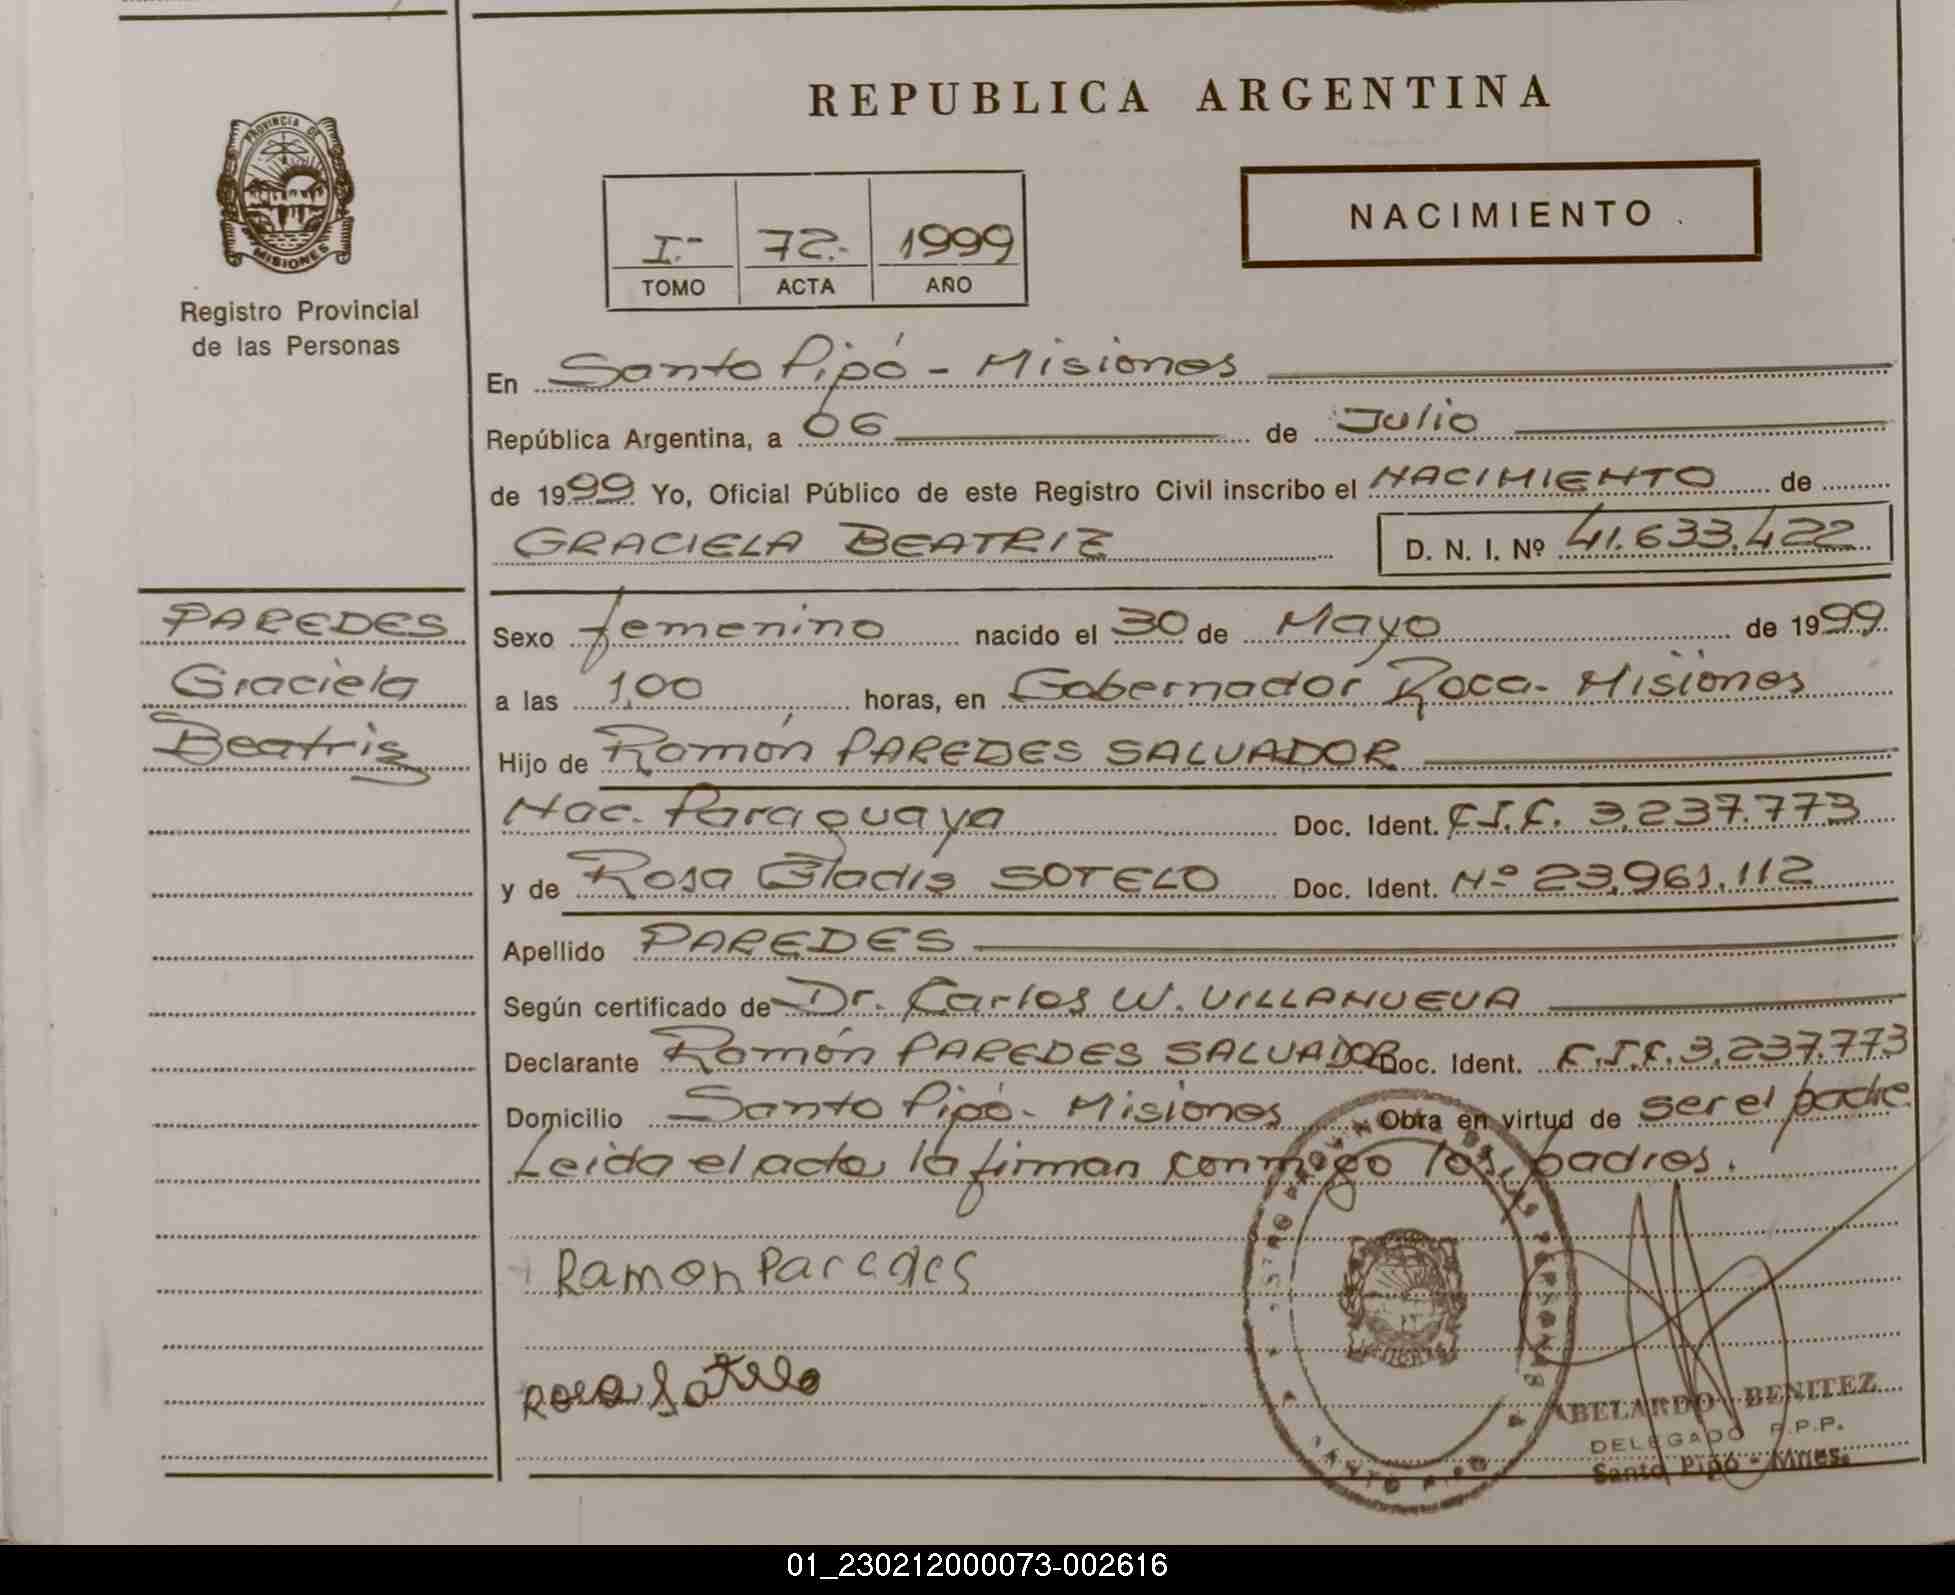 REPUBLICA ARGENTINA
PROVINCIA DE
MISIONES
Registro Provincial
de las Personas
I.- 72.- 1999
TOMO ACTA AÑO
NACIMIENTO
En Santo Pipó - Misiones
República Argentina, a 06 de Julio
de 1999 Yo, Oficial Público de este Registro Civil inscribo el NACIMIENTO de
GRACIELA BEATRIZ D. N. I. Nº 41.633.422
PAREDES
Graciela
Beatriz
Sexo femenino nacido el 30 de Mayo de 1999
a las 1,00 horas, en Gobernador Roca - Misiones
Hijo de Ramón PAREDES SALVADOR
Nac. Paraguaya Doc. Ident. C.I.C. 3.237.773
y de Rosa Gladis SOTELO Doc. Ident. Nº 23.961.112
Apellido PAREDES
Según certificado de Dr. Carlos W. VILLANUEVA
Declarante Ramón PAREDES SALVADOR Doc. Ident. C.I.C. 3.237.773
Domicilio Santo Pipó - Misiones Obra en virtud de ser el padre
Leida el acta, la firman conmigo los padres.
Ramon Paredes
Rosa Sotelo
ABELARDO BENITEZ
DELEGADO R.P.P.
Santo Pipó - Mnes.
SANTO PIPO
01_230212000073-002616